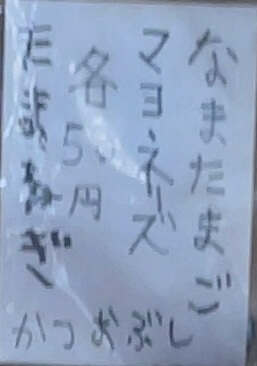 なまたまご
マヨネーズ
各50円
たまねぎ
かつおぶし